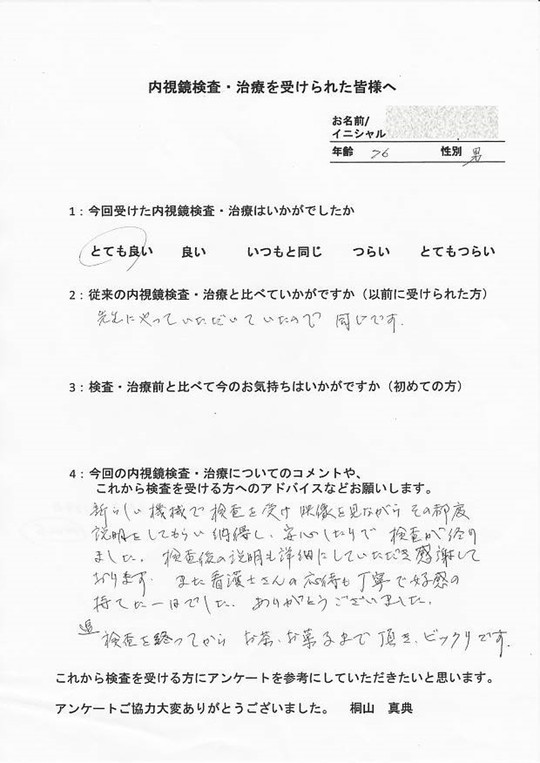 内視鏡検査・治療を受けられた皆様へ
お名前/
イニシャル
年齢 76 性別 男
1：今回受けた内視鏡検査・治療はいかがでしたか
とても良い 良い いつもと同じ つらい とてもつらい
2：従来の内視鏡検査・治療と比べていかがですか（以前に受けられた方）
先生にやっていただいていたので 同じです.
3：検査・治療前と比べて今のお気持ちはいかがですか（初めての方）
4：今回の内視鏡検査・治療についてのコメントや、
これから検査を受ける方へのアドバイスなどお願いします。
新らしい機械で検査を受け 映像を見ながら その都度
説明をしてもらい 納得し、安心したりで 検査が終り
ました. 検査後の説明も詳細にしていただき感謝して
おります. また看護士さんの応待も丁寧で好感の
持てた一日でした. ありがとうございました.
追 検査を終ってから お茶、お菓子まで頂き、ビックリです.
これから検査を受ける方にアンケートを参考にしていただきたいと思います。
アンケートご協力大変ありがとうございました。 桐山 真典